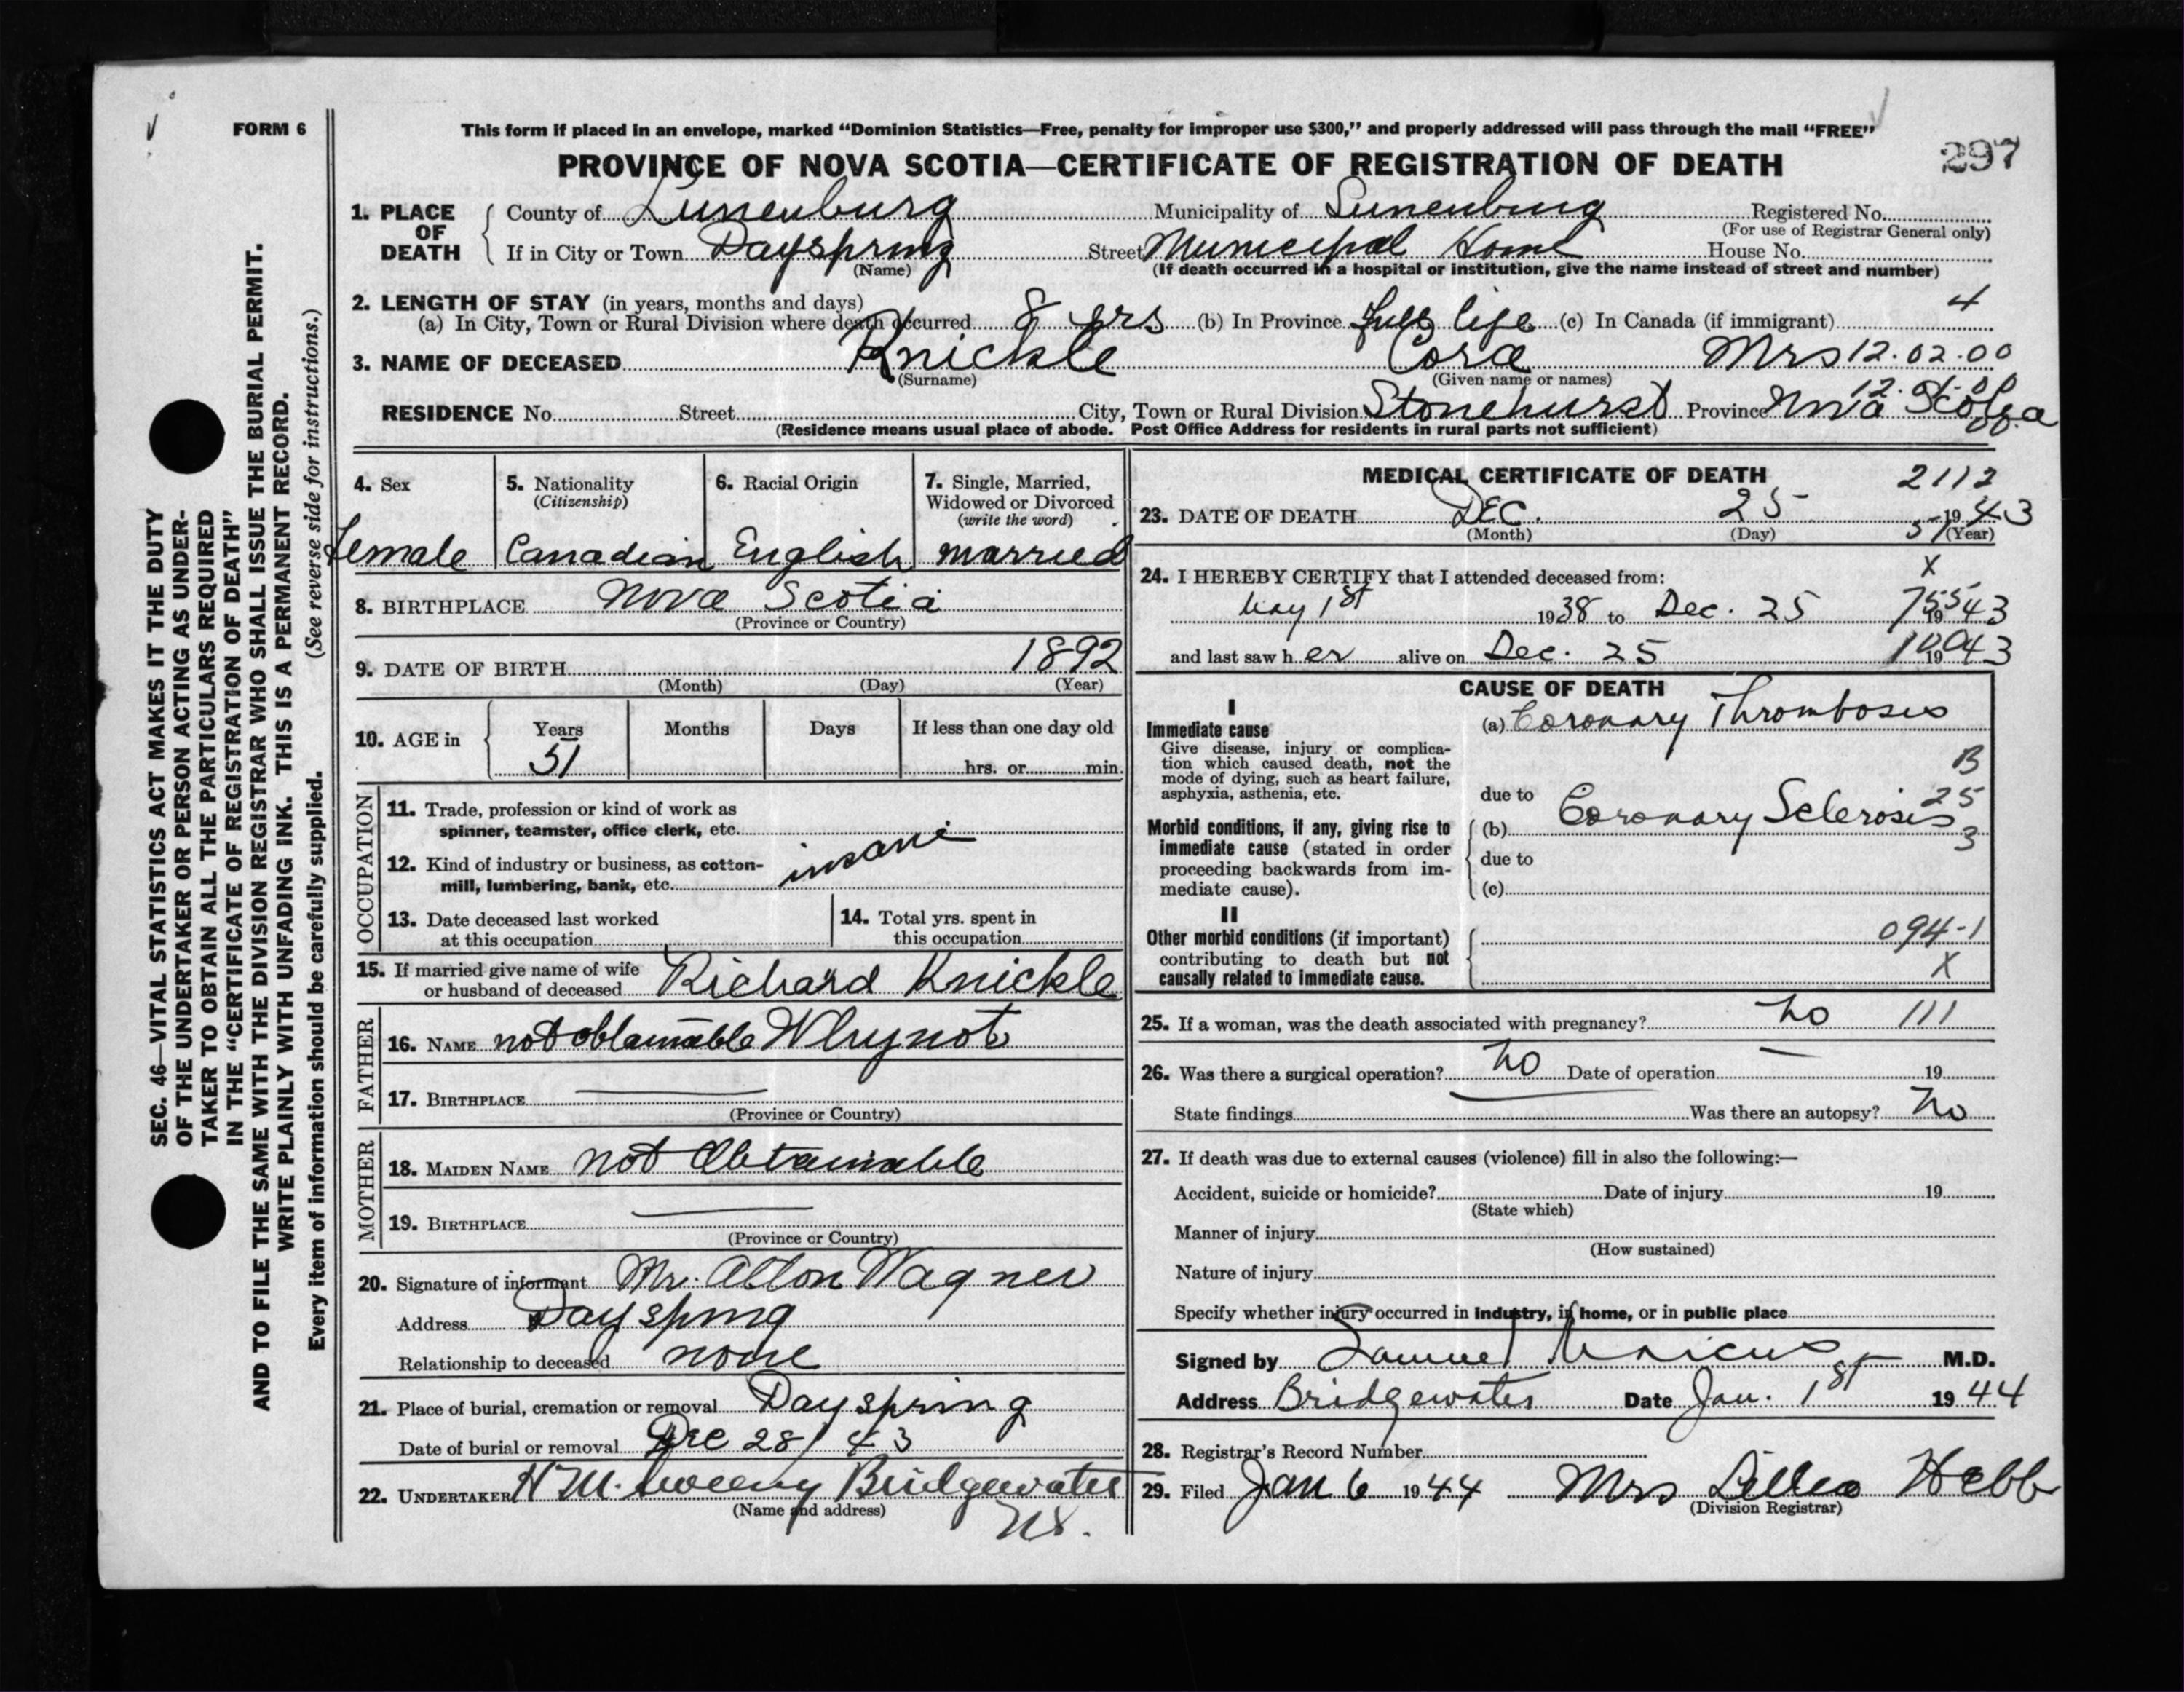 FORM 6
This form if placed in an envelope, marked “Dominion Statistics—Free, penalty for improper use $300,” and properly addressed will pass through the mail “FREE”
297
PROVINCE OF NOVA SCOTIA—CERTIFICATE OF REGISTRATION OF DEATH
1. PLACE OF DEATH
County of Lunenburg Municipality of Lunenburg Registered No.
(For use of Registrar General only)
If in City or Town Dayspring Street Municipal Home House No.
(Name) (If death occurred in a hospital or institution, give the name instead of street and number)
2. LENGTH OF STAY (in years, months and days) 4
(a) In City, Town or Rural Division where death occurred 8 yrs (b) In Province full life (c) In Canada (if immigrant)
3. NAME OF DECEASED Knickle Cora Mrs 12.02.00
(Surname) (Given name or names)
RESIDENCE No. Street City, Town or Rural Division Stonehurst Province Nova Scotia
(Residence means usual place of abode. Post Office Address for residents in rural parts not sufficient)
SEC. 46—VITAL STATISTICS ACT MAKES IT THE DUTY
OF THE UNDERTAKER OR PERSON ACTING AS UNDER-
TAKER TO OBTAIN ALL THE PARTICULARS REQUIRED
IN THE “CERTIFICATE OF REGISTRATION OF DEATH”
AND TO FILE THE SAME WITH THE DIVISION REGISTRAR WHO SHALL ISSUE THE BURIAL PERMIT.
WRITE PLAINLY WITH UNFADING INK. THIS IS A PERMANENT RECORD.
Every item of information should be carefully supplied. (See reverse side for instructions.)
4. Sex
female
5. Nationality
(Citizenship)
Canadian
6. Racial Origin
English
7. Single, Married,
Widowed or Divorced
(write the word)
married
8. BIRTHPLACE Nova Scotia
(Province or Country)
9. DATE OF BIRTH 1892
(Month) (Day) (Year)
10. AGE in Years Months Days If less than one day old
51 hrs. or min.
OCCUPATION
11. Trade, profession or kind of work as
spinner, teamster, office clerk, etc.
12. Kind of industry or business, as cotton-
mill, lumbering, bank, etc. insane
13. Date deceased last worked
at this occupation
14. Total yrs. spent in
this occupation
15. If married give name of wife
or husband of deceased Richard Knickle
FATHER
16. NAME not obtainable Whynot
17. BIRTHPLACE
(Province or Country)
MOTHER
18. MAIDEN NAME not Obtainable
19. BIRTHPLACE
(Province or Country)
20. Signature of informant Mr. Alton Wagner
Address Dayspring
Relationship to deceased none
21. Place of burial, cremation or removal Dayspring
Date of burial or removal Dec 28/43
22. UNDERTAKER H M. Sweeny Bridgewater
(Name and address)
NS.
MEDICAL CERTIFICATE OF DEATH 2112
23. DATE OF DEATH DEC. 25 1943
(Month) (Day) (Year)
51
24. I HEREBY CERTIFY that I attended deceased from: X
May 1st 1938 to Dec. 25 1943
and last saw her alive on Dec. 25 1943
CAUSE OF DEATH
I
Immediate cause
Give disease, injury or complica-
tion which caused death, not the
mode of dying, such as heart failure,
asphyxia, asthenia, etc.
(a) Coronary Thrombosis
B
due to
25
Morbid conditions, if any, giving rise to
immediate cause (stated in order
proceeding backwards from im-
mediate cause).
(b) Coronary Sclerosis
3
due to
(c)
II
Other morbid conditions (if important)
contributing to death but not
causally related to immediate cause.
094-1
X
25. If a woman, was the death associated with pregnancy? No 111
26. Was there a surgical operation? No Date of operation — 19
State findings Was there an autopsy? No
27. If death was due to external causes (violence) fill in also the following:—
Accident, suicide or homicide? Date of injury 19
(State which)
Manner of injury
(How sustained)
Nature of injury
Specify whether injury occurred in industry, in home, or in public place
Signed by Samuel Marcus M.D.
Address Bridgewater Date Jan. 1st 1944
28. Registrar's Record Number
29. Filed Jan 6 1944 Mrs Lillea Hebb
(Division Registrar)